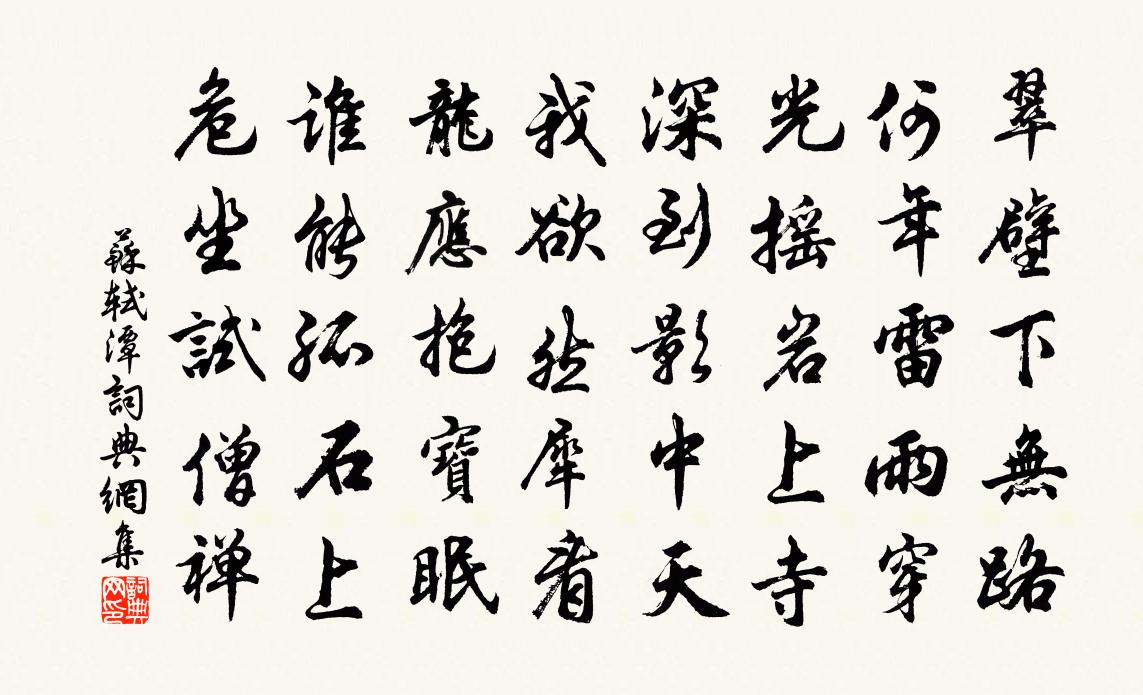 翠壁下無路
何年雷雨穿
光摇岩上寺
深到影中天
我欲然犀看
龍應抱寶眠
誰能孤石上
危坐試僧禅
蘇軾潭詞典網集
詞典网印